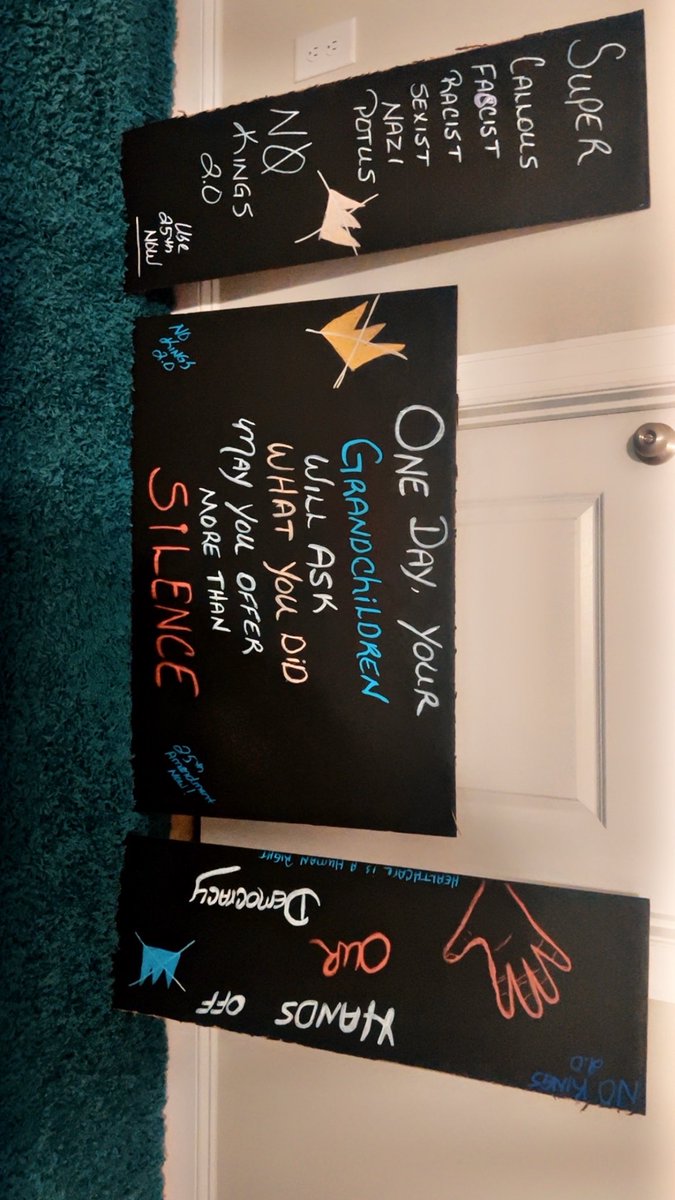 SUPER
CALLOUS
FASCIST
RACIST
SEXIST
NAZI
POTUS
NO
KINGS
2.0
USE
25th
NOW
ONE DAY, YOUR
GRANDCHILDREN
WILL ASK
WHAT YOU DID
MAY YOU OFFER
MORE THAN
SILENCE
NO
KINGS
2.0
25th
Amendment
NOW!
NO KINGS
2.0
HANDS OFF
OUR
DEMOCRACY
HEALTHCARE IS A HUMAN RIGHT